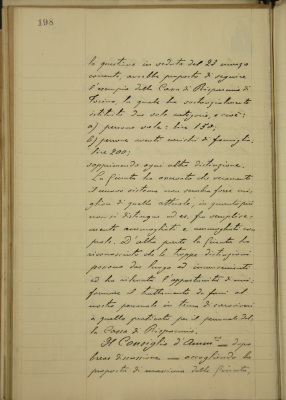 198
la questione in seduta del 23 marzo
corrente, avrebbe proposto di seguire
l'esempio della Cassa di Risparmio di
Torino, la quale ha
istituito due sole categorie, e cioè:
a) persone sole: lire 150;
b) persone aventi carichi di famiglia,
lire 200;
sopprimendo ogni altra distinzione.
La Giunta ha osservato che veramente
il nuovo sistema non sembra forse mi-
gliore di quello attuale, in quanto più
non si distingue ad es. fra semplice-
mente ammogliati e ammogliati con
prole: ad altra parte la Giunta ha
riconosciuto che le troppe distinzioni
possono dar luogo ad inconvenienti
ed ha ritenuto l'opportunità di uni-
formare il trattamento da farsi al
nostro personale in tema di caroviveri
a quello praticato per il personale del-
la Cassa di Risparmio.
Il Consiglio d'Amm.ne - dopo
breve discussione - accogliendo la
proposta di massima della Giunta,